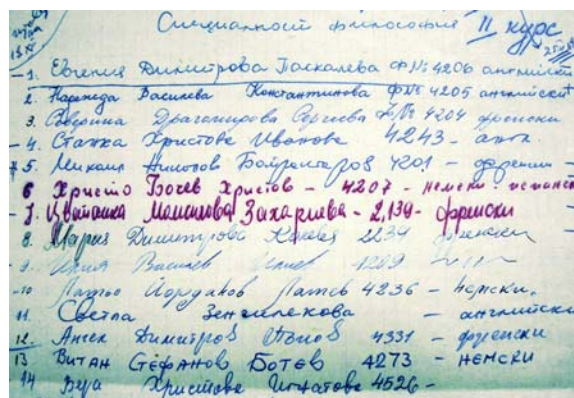 Специалност философия II курс
1. Евгения Димитрова Паскалева ф№ 4206 английски
2. Надежда Василева Константинова ф№ 4205 английски
3. Северина Драгомирова Сергиева ф№ 4204 френски
4. Станка Христова Иванова 4243 - англ.
5. Михаил 4201 - френски
6 Христо Бочев Христов - 4207 - немски
7. Цветанка Захариева - 2139 - френски
8. Мария Димитрова 2239 френски
9. Илия Василев Илиев 1209 - " -
10 Йорданов 4236 - немски.
11. Светла - английски
12. Ангел Димитров 4331 - френски
13 Витан Стефанов Ботев 4273 - немски
14 Христова Игнатова 4526 -